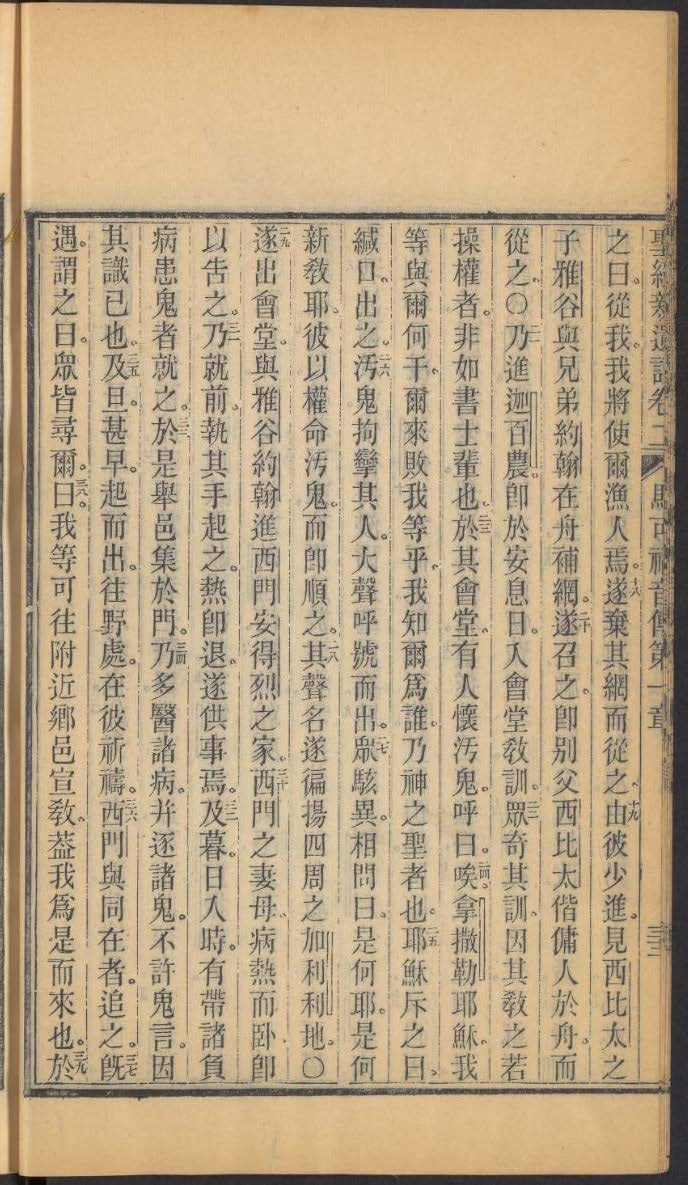 聖經新遺詔卷二 馬可福音傳第一章 三二
之曰。從我。我將使爾漁人焉。十八遂棄其網而從之。十九由彼少進。見西比太之
子雅谷與兄弟約翰在舟補網。二十遂召之。卽別父西比太偕傭人於舟。而
從之。〇二一乃進迦百農。卽於安息日。入會堂敎訓。二二眾奇其訓。因其敎之若
操權者。非如書士輩也。二三於其會堂。有人懷汚鬼。呼曰。二四唉。拿撒勒耶穌。我
等與爾何干。爾來敗我等乎。我知爾爲誰。乃神之聖者也。二五耶穌斥之曰。
緘口。出之。二六汚鬼拘攣其人。大聲呼號而出。二七眾駭異。相問曰。是何耶。是何
新敎耶。彼以權命汚鬼。而卽順之。二八其聲名遂徧揚四周之加利利地。〇
二九遂出會堂。與雅谷約翰進西門安得烈之家。三十西門之妻母。病熱而卧。卽
以吿之。三一乃就前。執其手起之。熱卽退。遂供事焉。三二及暮。日入時。有帶諸負
病患鬼者就之。三三於是舉邑集於門。三四乃多醫諸病。并逐諸鬼。不許鬼言。因
其識己也。三五及旦甚早。起而出。往野處。在彼祈禱。三六西門與同在者。追之。三七旣
遇。謂之曰。眾皆尋爾。三八曰。我等可往附近鄉邑宣敎。葢我爲是而來也。三九於